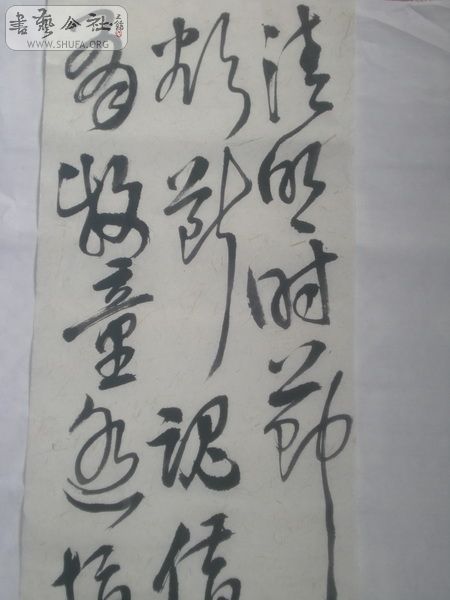 書藝公社
WWW.SHUFA.ORG
清明时节
欲断魂借
有牧童遥指